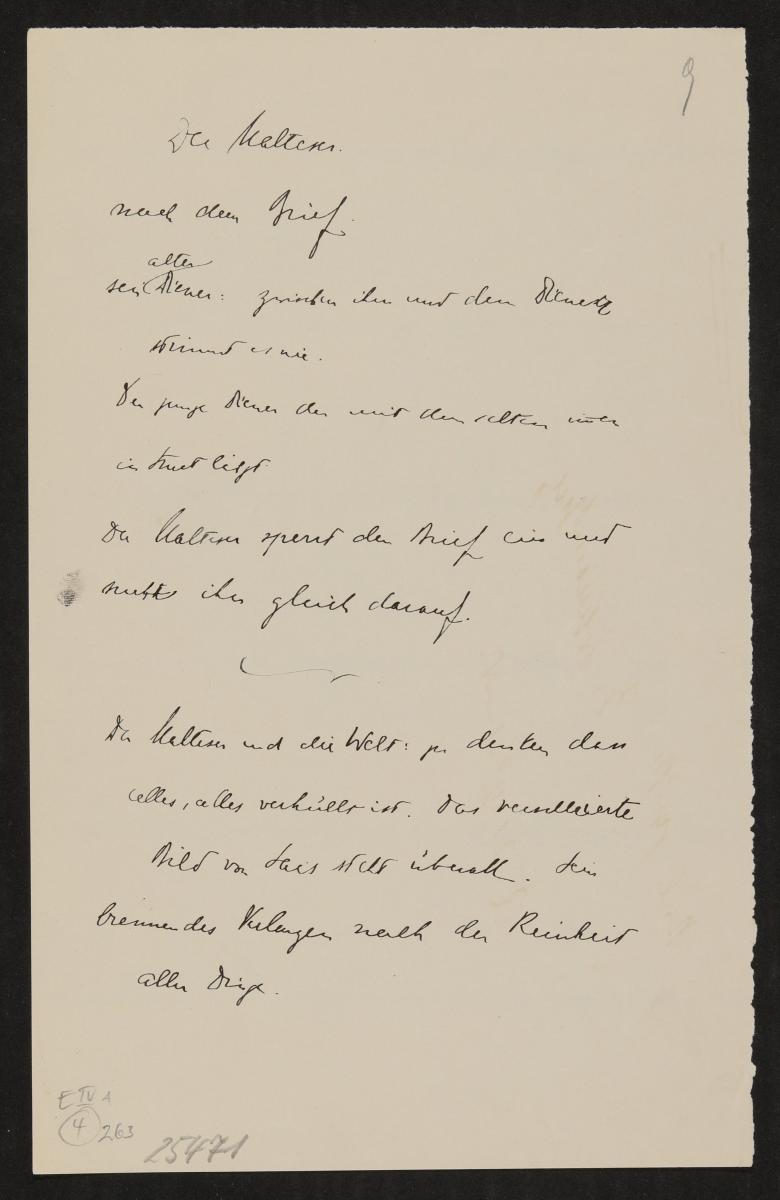 9
Der Malteser.
nach dem Brief.
alter
sein Diener: zwischen ihm und dem Diener
stimmt es nie.
Der junge Diener der mit dem alten immer
in Streit liegt
Der Malteser sperrt den Brief ein und
sucht ihn gleich darauf.
Der Malteser und die Welt: zu denken dass
alles, alles verhüllt ist. Das verschleierte
Bild von Sais steht überall. Sein
brennendes Verlangen nach der Reinheit
aller Dinge.
E IV A
4 263
25471